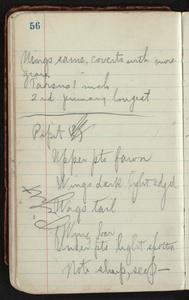 56
Wings same, coverts with more
grain
Tarsus 1 inch
2nd primary longest
Pipit
Upper pts fawn
Wings dark light edged
Wags tail
Under pts light spotted
Note sharp,